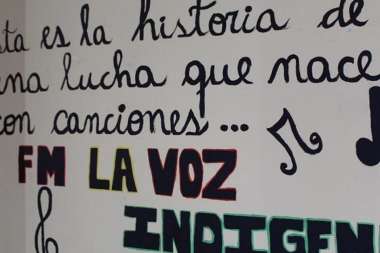 ta es la historia de
na lucha que nace
con canciones...
FM LA VOZ
INDIGEN